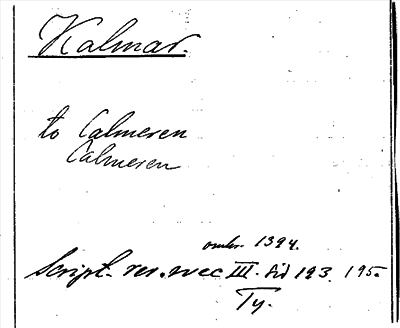 Kalmar.
to Calmeren
Calmeren
omkr. 1394.
Script. rer. svec III. sid 193. 195.
Ty.